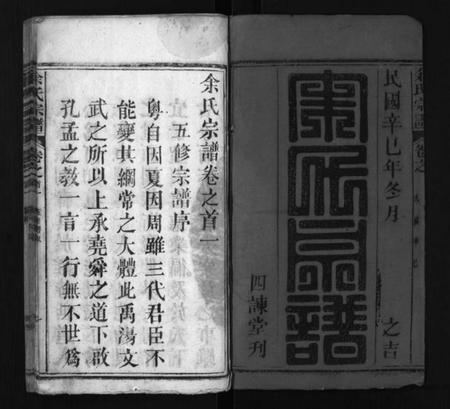 民國辛巳年冬月
之吉
余氏宗譜
四諫堂刊
余氏宗譜卷之首一
五修宗譜序
粵自因夏因周雖三代君臣不
能蘷其綱常之大體此禹湯文
武之所以上承堯舜之道下啟
孔孟之教一言一行無不世爲
余氏宗譜
余氏宗譜
卷之